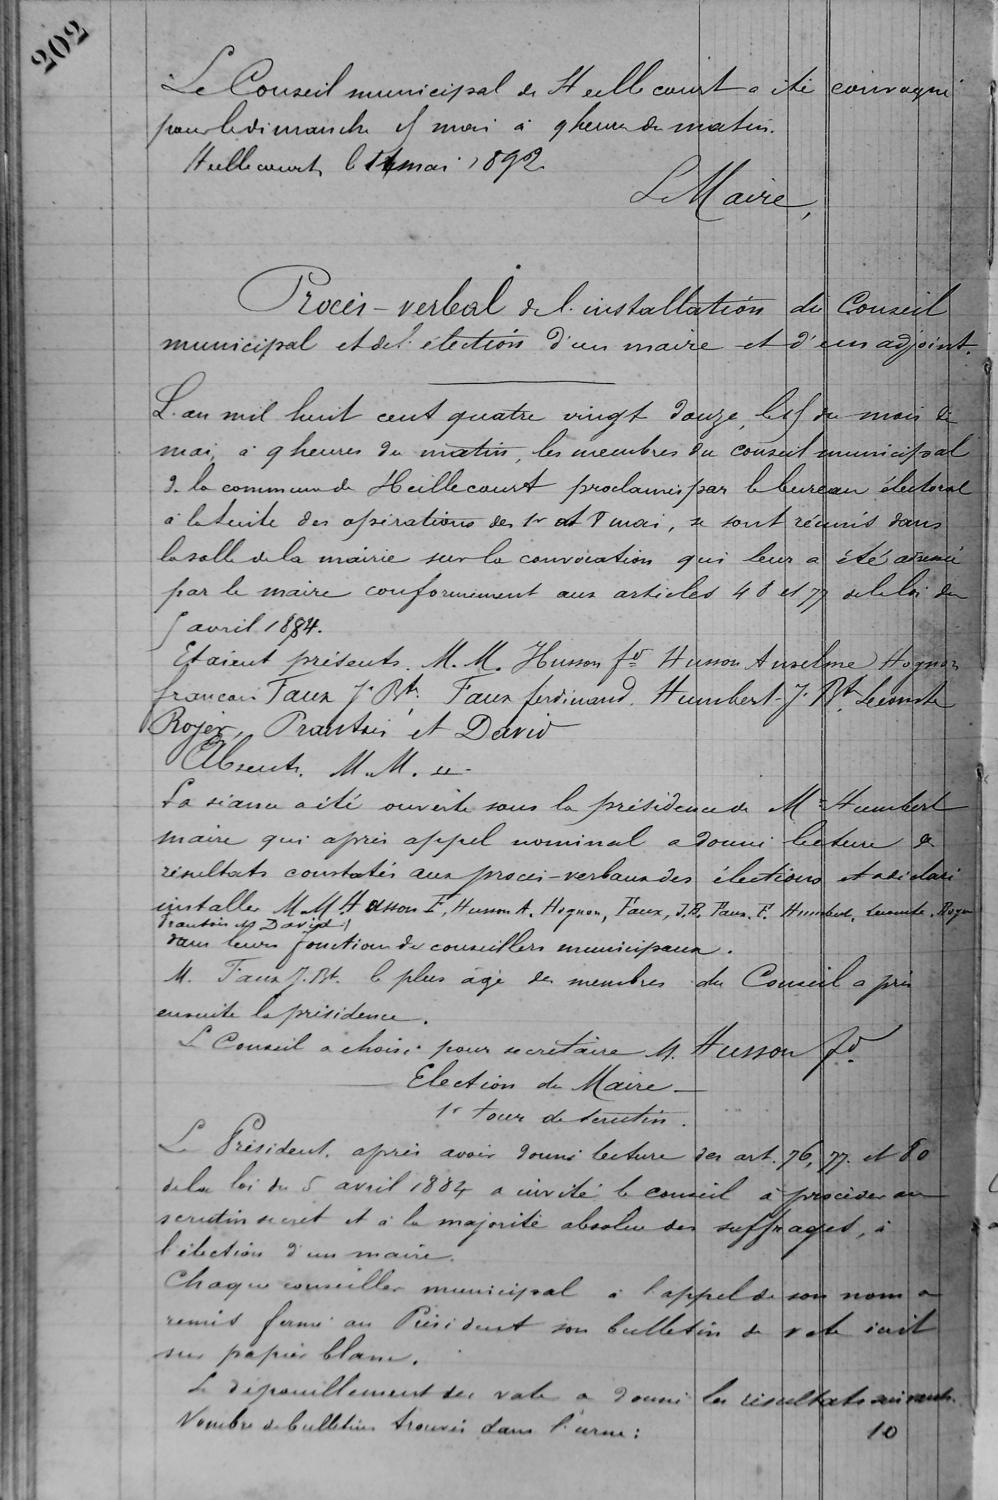 202
Le Conseil municipal de Heillecourt a été convoqué
pour le dimanche 15 mai à 9 heures du matin.
Heillecourt, le mai 1892
Le Maire,
Procès-verbal de l'installation du Conseil
municipal et de l'élection d'un maire et d'un adjoint.
L'an mil huit cent quatre vingt douze, le 15 du mois de
mai, à 9 heures du matin, les membres du conseil municipal
de la commune de Heillecourt proclamés par le bureau électoral
à la suite des opérations des 1er et 8 mai, se sont réunis dans
la salle de la mairie sur la convocation qui leur a été adressée
par le maire conformément aux articles 48 et 77 de la loi du
5 avril 1884.
Etaient présents. M.M. Husson fd Husson Anselme Hognon
françois Faux J. Bt, Faux ferdinand. Humbert J. Bt Lecomte
Royer, Prautois et David
Absents. M.M.
La séance a été ouverte sous la présidence de Mr Humbert
maire qui après appel nominal a donné lecture des
résultats constatés aux procès-verbaux des élections et a déclaré
installer M.M. Husson F, Husson A. Hognon, Faux, J.B. Faux. F. Humbert, Lecomte, Royer
Prautois et David
dans leurs fonctions de conseillers municipaux.
M. Faux J. Bt. le plus âgé des membres du Conseil a pris
ensuite la présidence.
Le Conseil a choisi pour secrétaire M. Husson fd
Election du Maire
1er tour de scrutin.
Le Président, après avoir donné lecture des art. 76, 77 et 80
de la loi du 5 avril 1884 a invité le conseil à procéder au
scrutin secret et à la majorité absolue des suffrages, à
l'élection d'un maire.
Chaque conseiller municipal à l'appel de son nom a
remis fermé au Président son bulletin de vote écrit
sur papier blanc.
Le dépouillement des vote a donné les résultats suivants.
Nombre de bulletins trouvés dans l'urne : 10